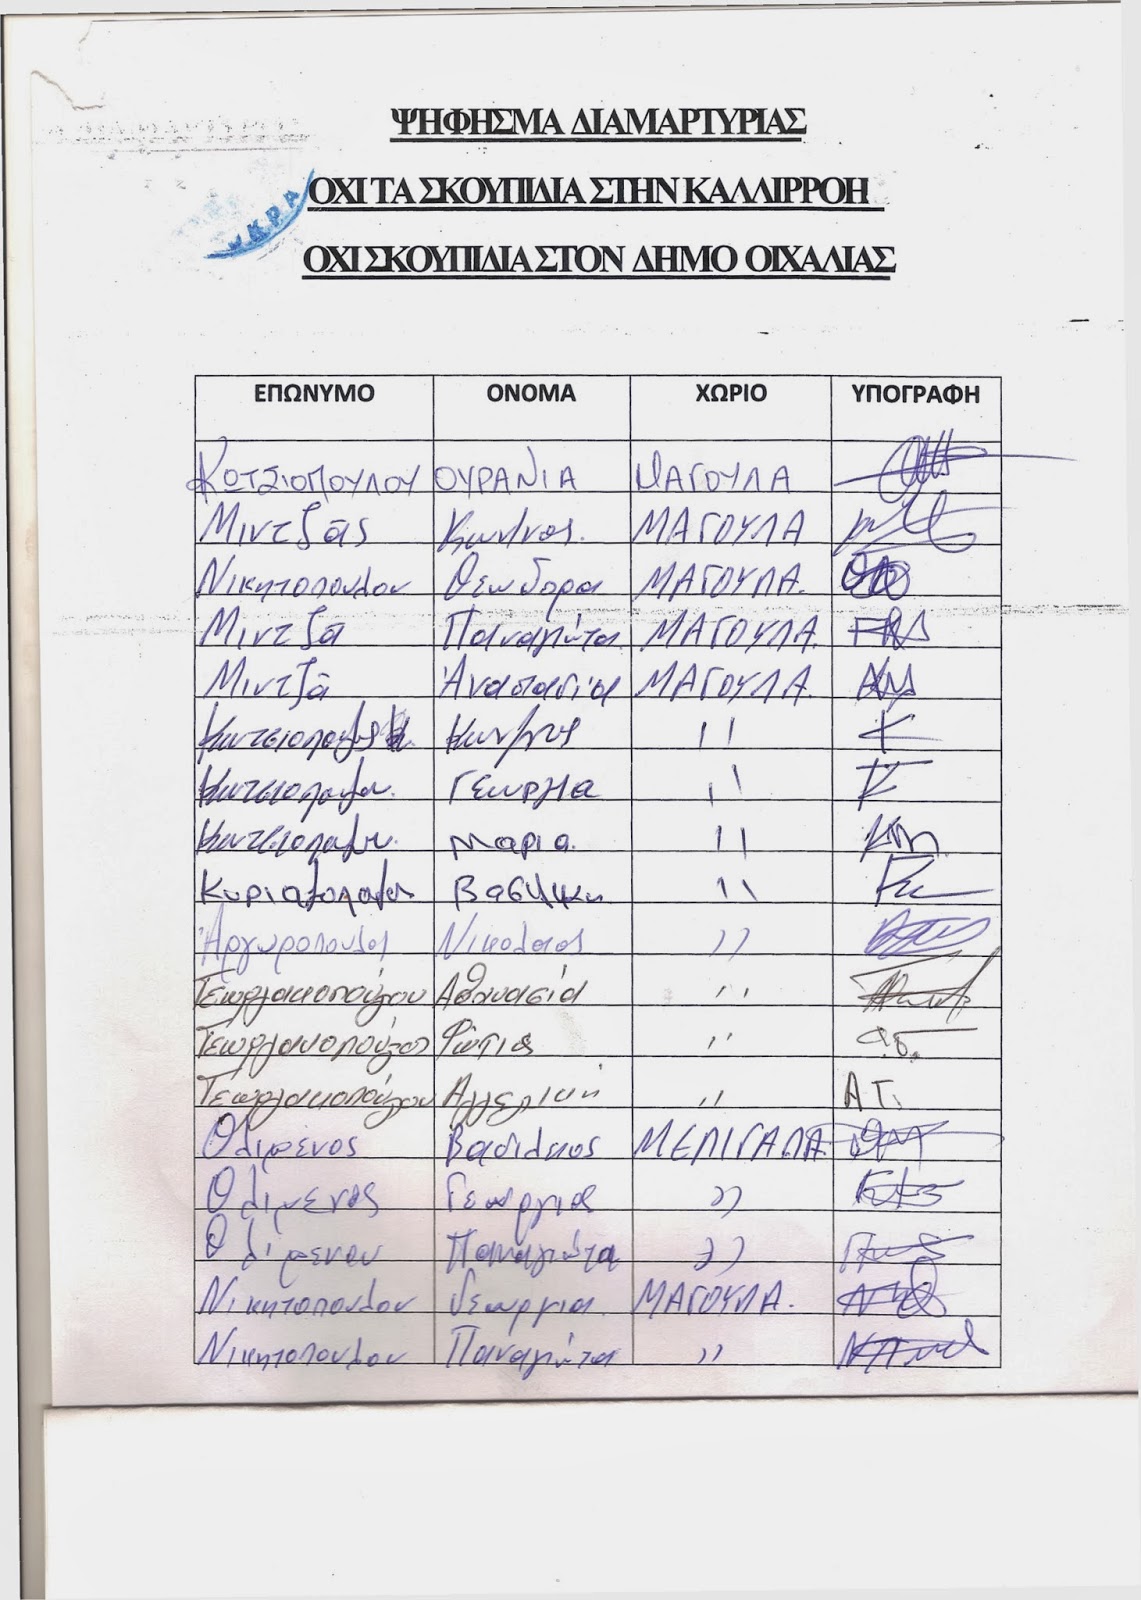 ΨΗΦΗΣΜΑ ΔΙΑΜΑΡΤΥΡΙΑΣ
ΟΧΙ ΤΑ ΣΚΟΥΠΙΔΙΑ ΣΤΗΝ ΚΑΛΛΙΡΡΟΗ
ΟΧΙ ΣΚΟΥΠΙΔΙΑ ΣΤΟΝ ΔΗΜΟ ΟΙΧΑΛΙΑΣ
ΕΠΩΝΥΜΟ ΟΝΟΜΑ ΧΩΡΙΟ ΥΠΟΓΡΑΦΗ
Κωτσιοπουλου ΟΥΡΑΝΙΑ ΜΑΓΟΥΛΑ
Μιντζάς Κων/νος. ΜΑΓΟΥΛΑ
Νικητοπουλου Θεωδορα ΜΑΓΟΥΛΑ.
Μιντζά Παναγιώτα. ΜΑΓΟΥΛΑ.
Μιντζά Αναστασία ΜΑΓΟΥΛΑ.
Κων/νος ''
Γεωργια ''
Μαρια. ''
Βασιλικη ''
Αργυροπουλος Νικολαος ''
Γεωργακοπούλου Αθανασία ''
Γεωργακοπούλος Φώτιος ''
Γεωργακοπούλου Αγγελική '' Α Γ.
Θλιμενος Βασιλειος ΜΕΛΙΓΑΛΑ.
Θλιμενος Γεωργιος ''
Θλιμενου Παναγιώτα ''
Νικητοπουλου Γεωργια. ΜΑΓΟΥΛΑ.
Νικητοπουλου Παναγιώτα ''